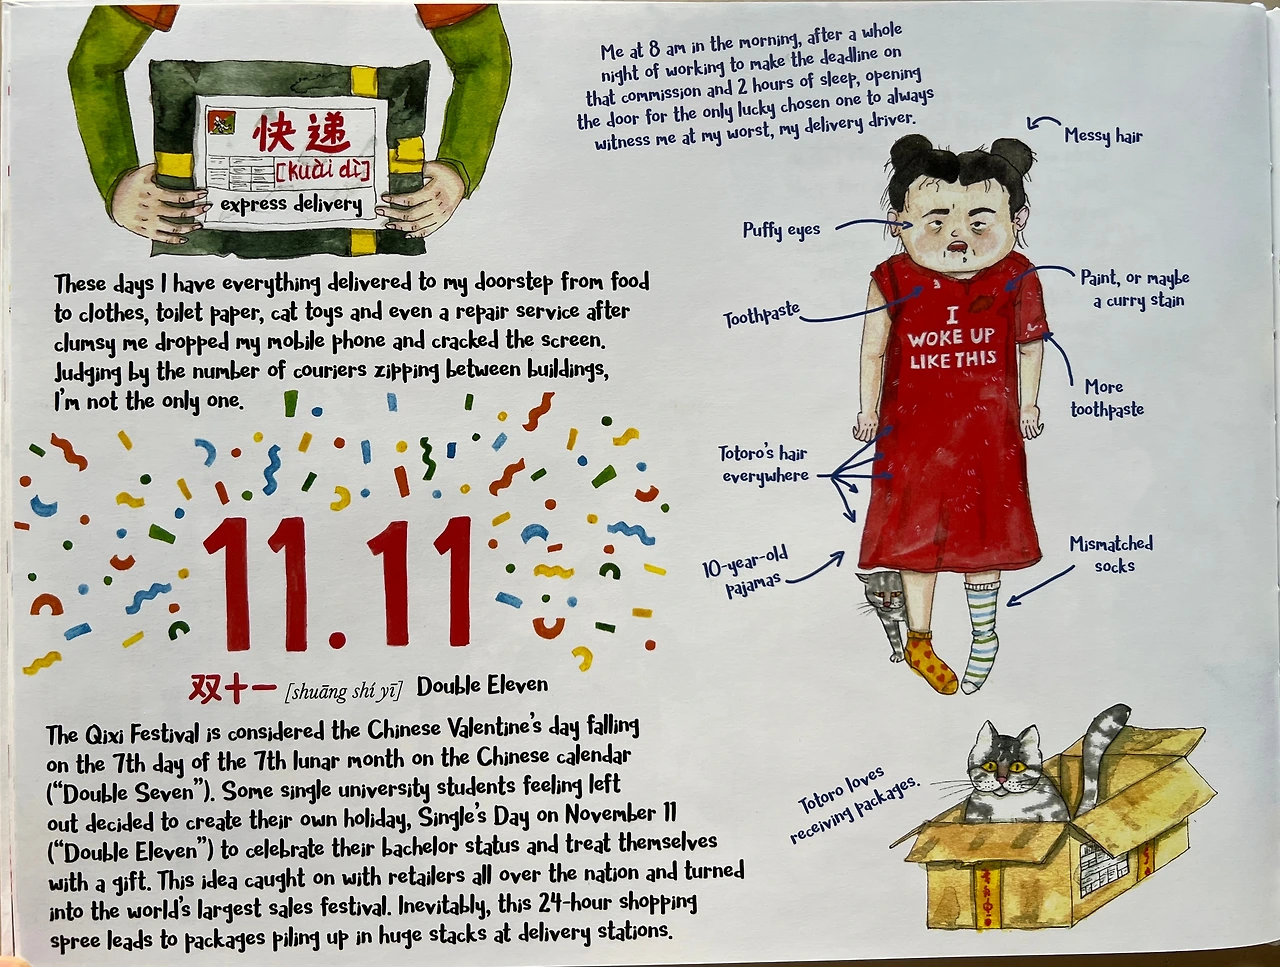 快递
[kuài dì]
express delivery
These days I have everything delivered to my doorstep from food
to clothes, toilet paper, cat toys and even a repair service after
clumsy me dropped my mobile phone and cracked the screen.
Judging by the number of couriers zipping between buildings,
I'm not the only one.
11.11
双十一 [shuāng shí yī] Double Eleven
The Qixi Festival is considered the Chinese Valentine's day falling
on the 7th day of the 7th lunar month on the Chinese calendar
("Double Seven"). Some single university students feeling left
out decided to create their own holiday, Single's Day on November 11
("Double Eleven") to celebrate their bachelor status and treat themselves
with a gift. This idea caught on with retailers all over the nation and turned
into the world's largest sales festival. Inevitably, this 24-hour shopping
spree leads to packages piling up in huge stacks at delivery stations.
Me at 8 am in the morning, after a whole
night of working to make the deadline on
that commission and 2 hours of sleep, opening
the door for the only lucky chosen one to always
witness me at my worst, my delivery driver.
Messy hair
Puffy eyes
Paint, or maybe
a curry stain
Toothpaste
I
WOKE UP
LIKE THIS
More
toothpaste
Totoro's hair
everywhere
10-year-old
pajamas
Mismatched
socks
Totoro loves
receiving packages.